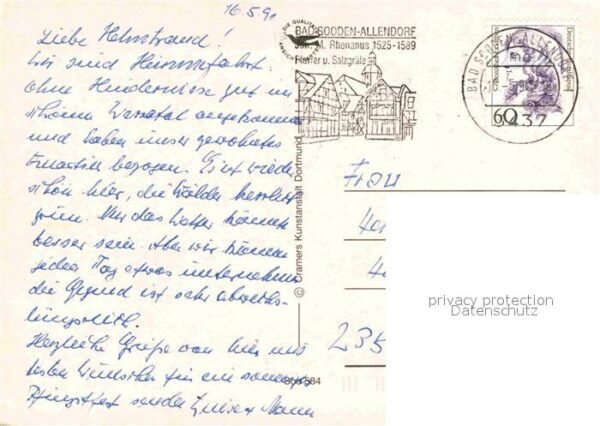 16.5.91
Liebe Helmtraud!
Wir sind Himmelfahrt
ohne Hindernisse gut im
schönen Werratal angekommen
und haben unser gewohntes
Quartier bezogen. Es ist wieder
schön hier, die Wälder herrlich
grün. Nur das Wetter könnte
besser sein. Aber wir können
jeden Tag etwas unternehmen
die Gegend ist sehr abwechs-
lungsreich.
Herzliche Grüße von hier und
beste Wünsche für ein sonniges
Pfingstfest sendet
DIE QUALITÄTS
ANSICHTSKARTE
BAD SOODEN-ALLENDORF
Joh. M. Rhenanus 1525-1589
Pfarrer u. Salzgräfe
BAD SOODEN-ALLENDORF
3437
60
Deutsche Bundespost
© Cramers Kunstanstalt Dortmund
Frau
235
privacy protection
Datenschutz